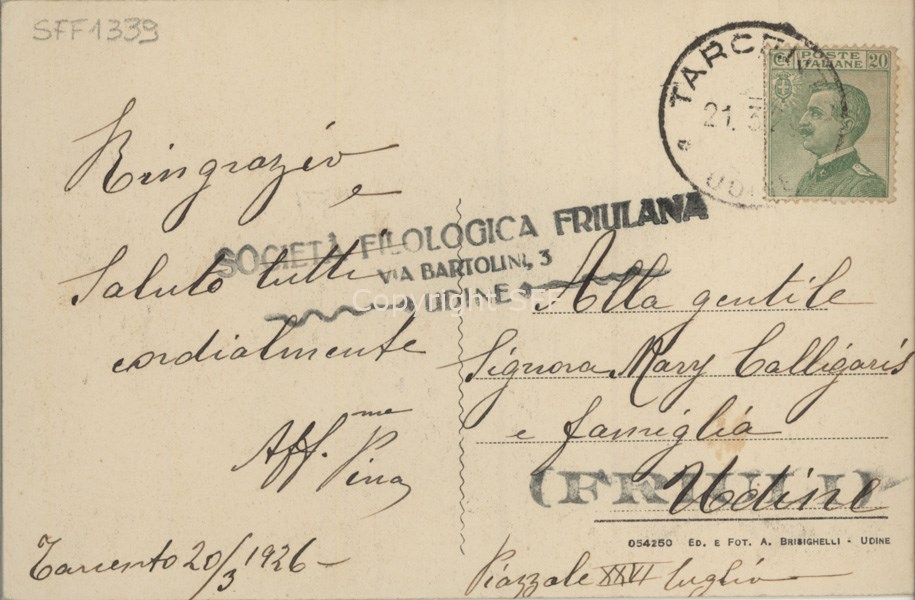 SFF1339
TARCEN
21. 3.
UD
C. POSTE ITALIANE 20
Ringrazio
e
Saluto tutti
cordialmente
Aff.me
Pina
Tarcento 20/3 1926 -
SOCIETÀ FILOLOGICA FRIULANA
VIA BARTOLINI, 3
UDINE
Copyright SFF
Alla gentile
Signora Mary Calligaris
e famiglia
(FRIULI)
Udine
054250 ED. E FOT. A. BRISIGHELLI - UDINE
Piazzale XXVI luglio